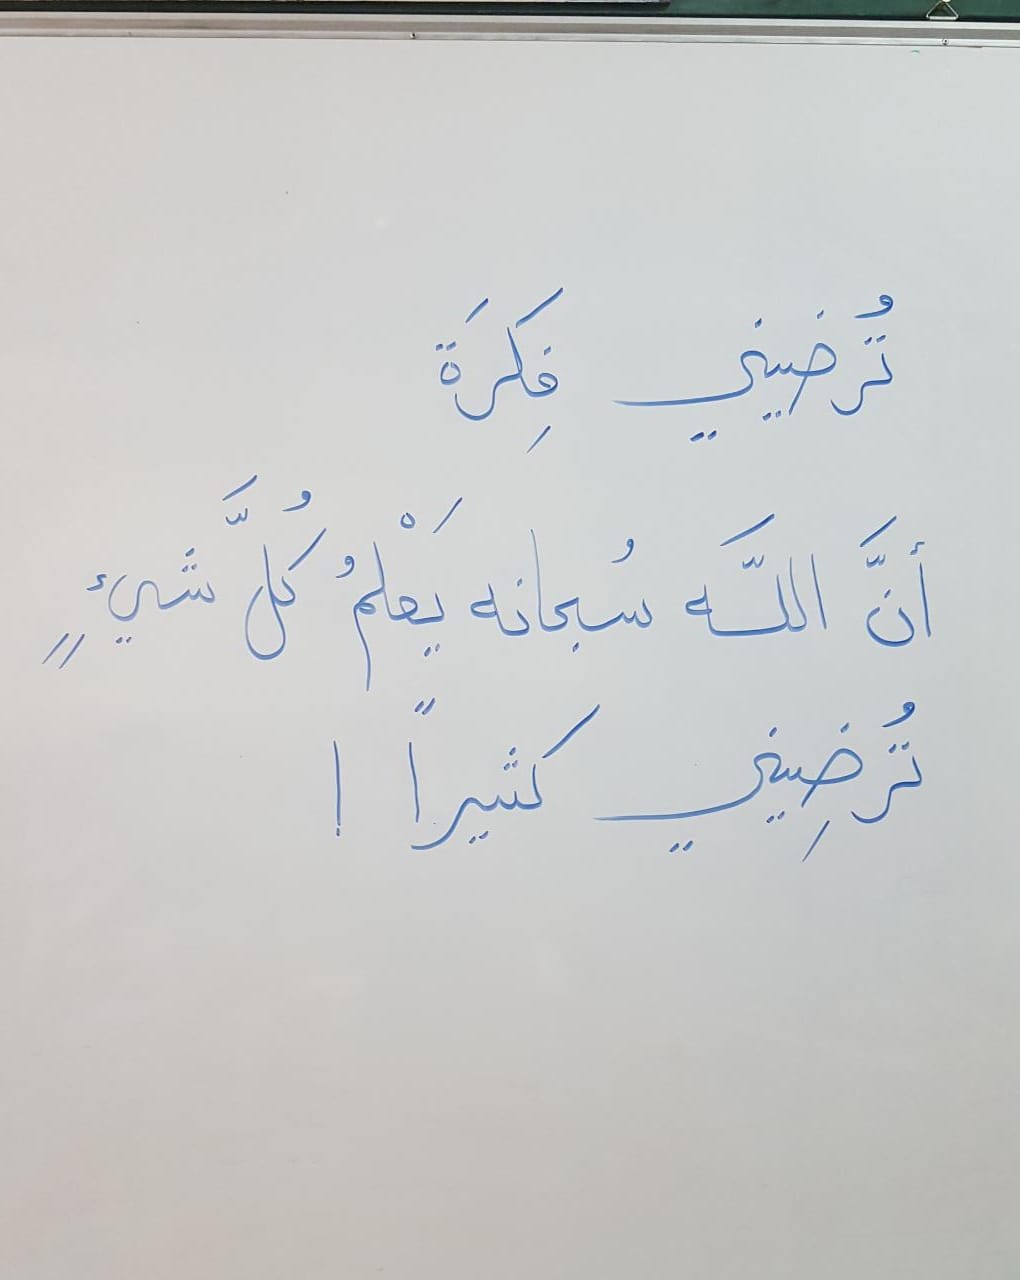 تُرضيني فِكرَة
أنَّ اللَّه سُبحانه يَعْلمُ كُلَّ شيءٍ
تُرضِيني كثيراً !